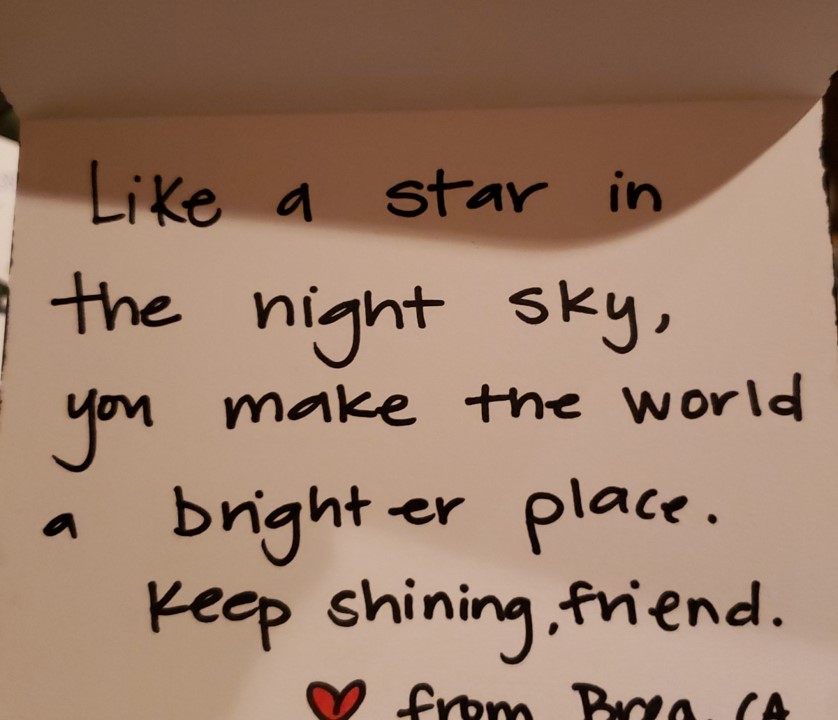 Like a star in
the night sky,
you make the world
a brighter place.
Keep shining, friend.
from Brea, CA